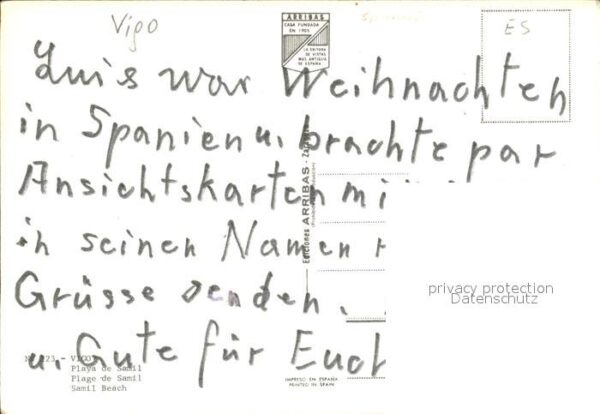 Vigo
ES
ARRIBAS
CASA FUNDADA
EN 1905
LA EDITORA
DE VISTAS
MAS ANTIGUA
DE ESPAÑA
Luis war Weihnachten
in Spanien u. brachte par
Ansichtskarten mi
in seinen Namen
Grüsse senden.
u. Gute für Euch
Ediciones ARRIBAS - Zaragoza
privacy protection
Datenschutz
223 - VIGO
Playa de Samil
Plage de Samil
Samil Beach
IMPRESO EN ESPAÑA
PRINTED IN SPAIN